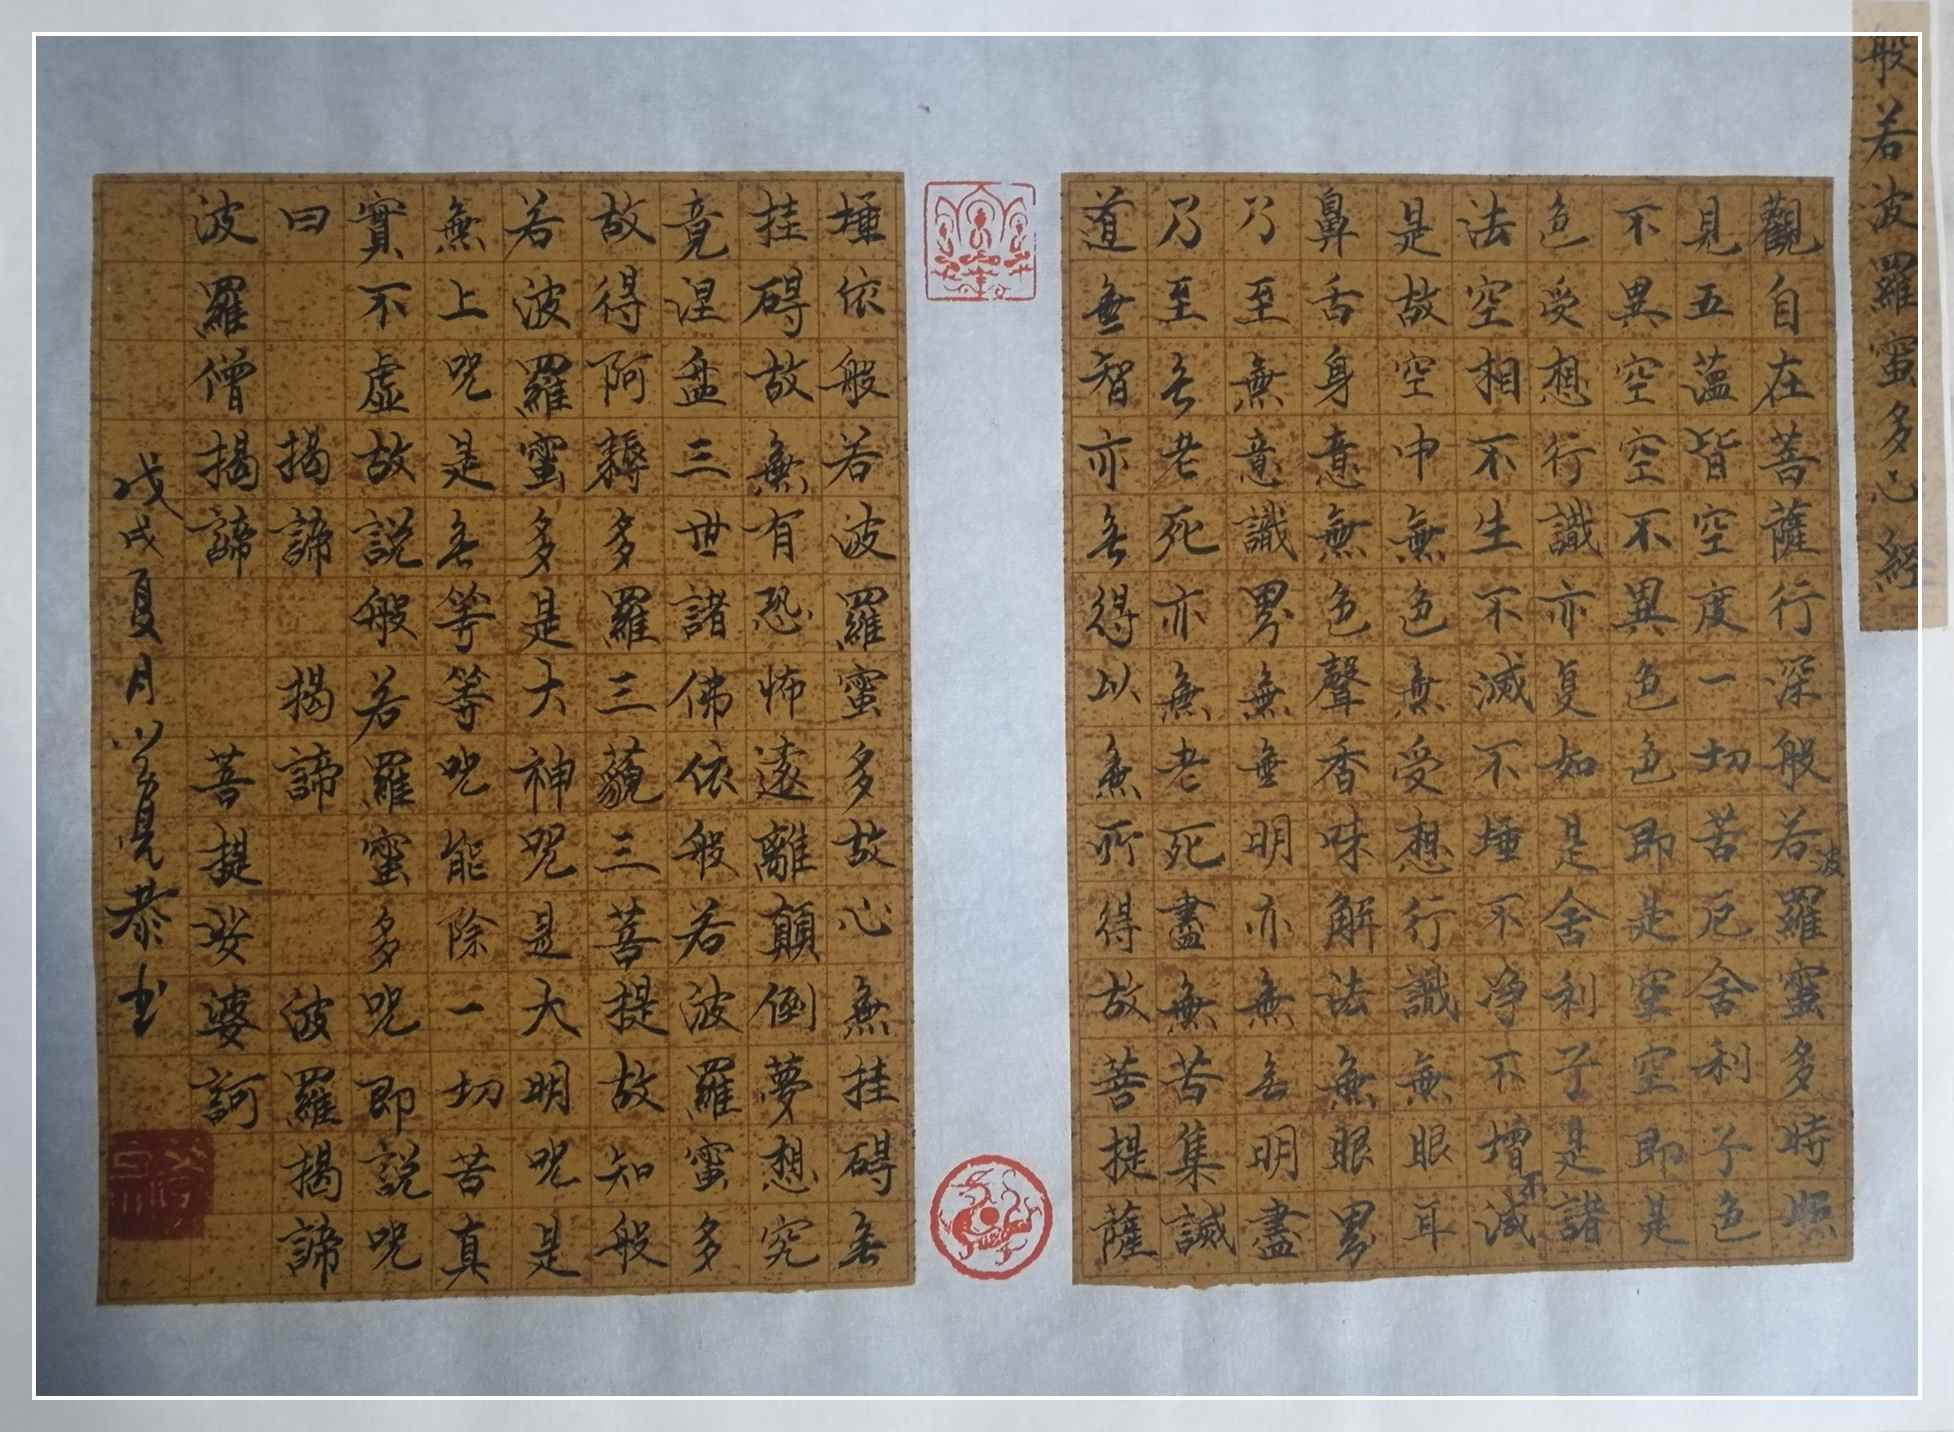 般若波羅蜜多心經
觀自在菩薩行深般若波羅蜜多時照
見五蘊皆空度一切苦厄舍利子色
不異空空不異色色即是空空即是
色受想行識亦复如是舍利子是諸
法空相不生不滅不埵不净不增不減
是故空中無色無受想行識無眼耳
鼻舌身意無色聲香味解法無眼界
乃至無意識界無無明亦無无明盡
乃至无老死亦無老死盡無苦集諴
道無智亦无得以無所得故菩提薩
埵依般若波羅蜜多故心無挂碍无
挂碍故無有恐怖遠離顛倒夢想究
竟涅盘三世諸佛依般若波羅蜜多
故得阿耨多羅三藐三菩提故知般
若波羅蜜多是大神咒是大明咒是
無上咒是无等等咒能除一切苦真
實不虛故説般若羅蜜多咒即説咒
曰 揭諦 揭諦 波羅揭諦
波羅僧揭諦 菩提娑婆訶
戊戌夏月 恭书